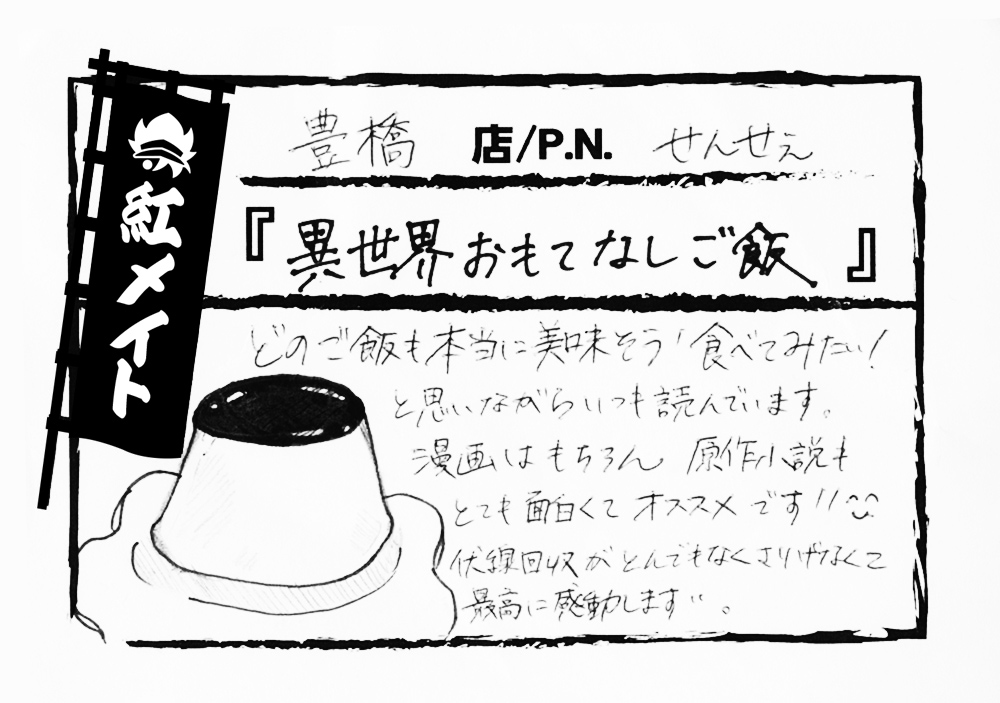 紅メイト
豊橋 店/P.N. せんせぇ
『異世界おもてなしご飯』
どのご飯も本当に美味そう!食べてみたい!
と思いながらいつも読んでいます。
漫画はもちろん 原作小説も
とても面白くて オススメ です!!
伏線回収がとんでもなくさりげなくて
最高に感動します。